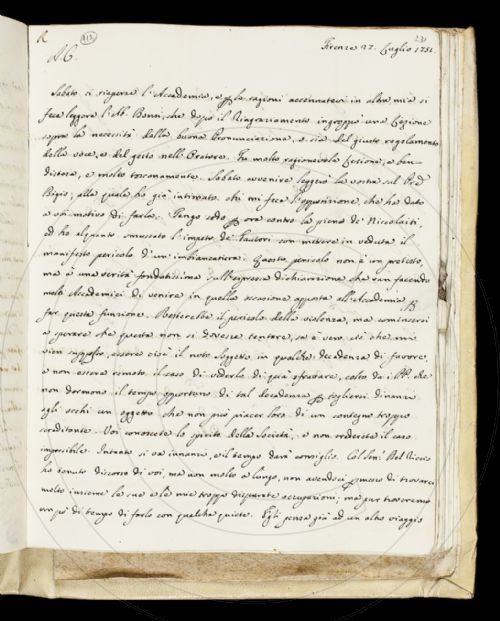 R
212
231
A. C.
Firenze 27. Luglio 1751.
Sabato si riaperse l'Accademia, e p le ragioni accennatevi in altra mia si
fece leggere l'Ab. Bonsi, che dopo il Ringraziamento ingroppò una Lezione
sopra la necessità della buona Pronunziazione, e sia del giusto regolamento
della voce, e del gesto nell'Oratore. Fu molto ragionevole Lezione, e ben
distesa, e molto toscanamente. Sabato avvenire leggerà la vostra sul
Bigio; alla quale ho già intimato chi mi fece l'opposizione, che ha dato
a voi motivo di farla. Tengo sodo p ora contro la piena de' Niccolaiti,
ed ho alquanto smussato l'impeto de' Fautori con mettere in veduta il
manifesto pericolo d'un'imbiancatura. Questo pericolo non è un pretesto,
ma è una verità fondatissima sull'espressa dichiarazione che van facendo
molti Accademici di venire in quella occasione apposta all'Accademia p
far questa funzione. Resterebbe il pericolo della violenza, ma comincerei
a sperare che questa non si dovesse tentare, se è vero ciò che mi
vien supposto, essere cioè il noto soggetto in qualche decadenza di favore,
e non essere remoto il caso di vederlo di quà sfrattare, colto da i PP. che
non dormono il tempo opportuno di tal decadenza p togliersi dinanzi
agli occhi un oggetto che non può piacer loro di un contegno troppo
screditante. Voi conoscete lo spirito della Società, e non crederete il caso
impossibile. Intanto si va innanzi, e il tempo darà consiglio. Col Sen. Del Riccio
ho tenuto discorso di voi, ma non molto a lungo, non avendoci pmesso di trovarci
molto insieme le sue e le mie troppo disparate occupazioni; ma pur troveremo
un pò di tempo di farlo con qualche quiete. Egli pensa già ad un altro viaggio